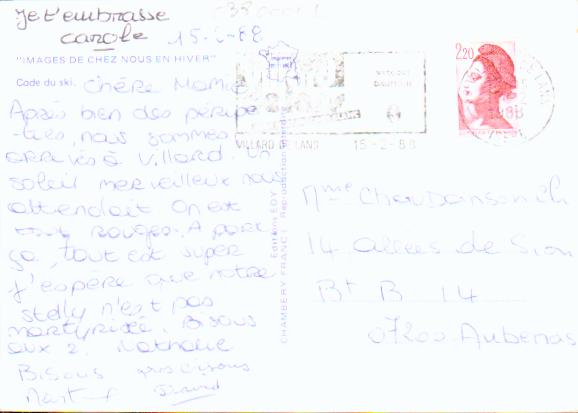 Je t'embrasse
carole 15-2-88
"IMAGES DE CHEZ NOUS EN HIVER"
Code du ski.
Chère Mamie
Après bien des péripé
-ties, nous sommes
arrivés à Villard. Un
soleil merveilleux nous
attendait. On est
tous rouges. A part
ça, tout est super
J'espère que notre
stelly n'est pas
martyrisée. Bisous
aux 2. Nathalie
Bisous gros bisous
2,20
VILLARD DE LANS 15-2-88
Editions EDY
CHAMBERY FRANCE Reproduction interdite
Mme
14, allées de Sion
Bt B 14
07200 Aubenas